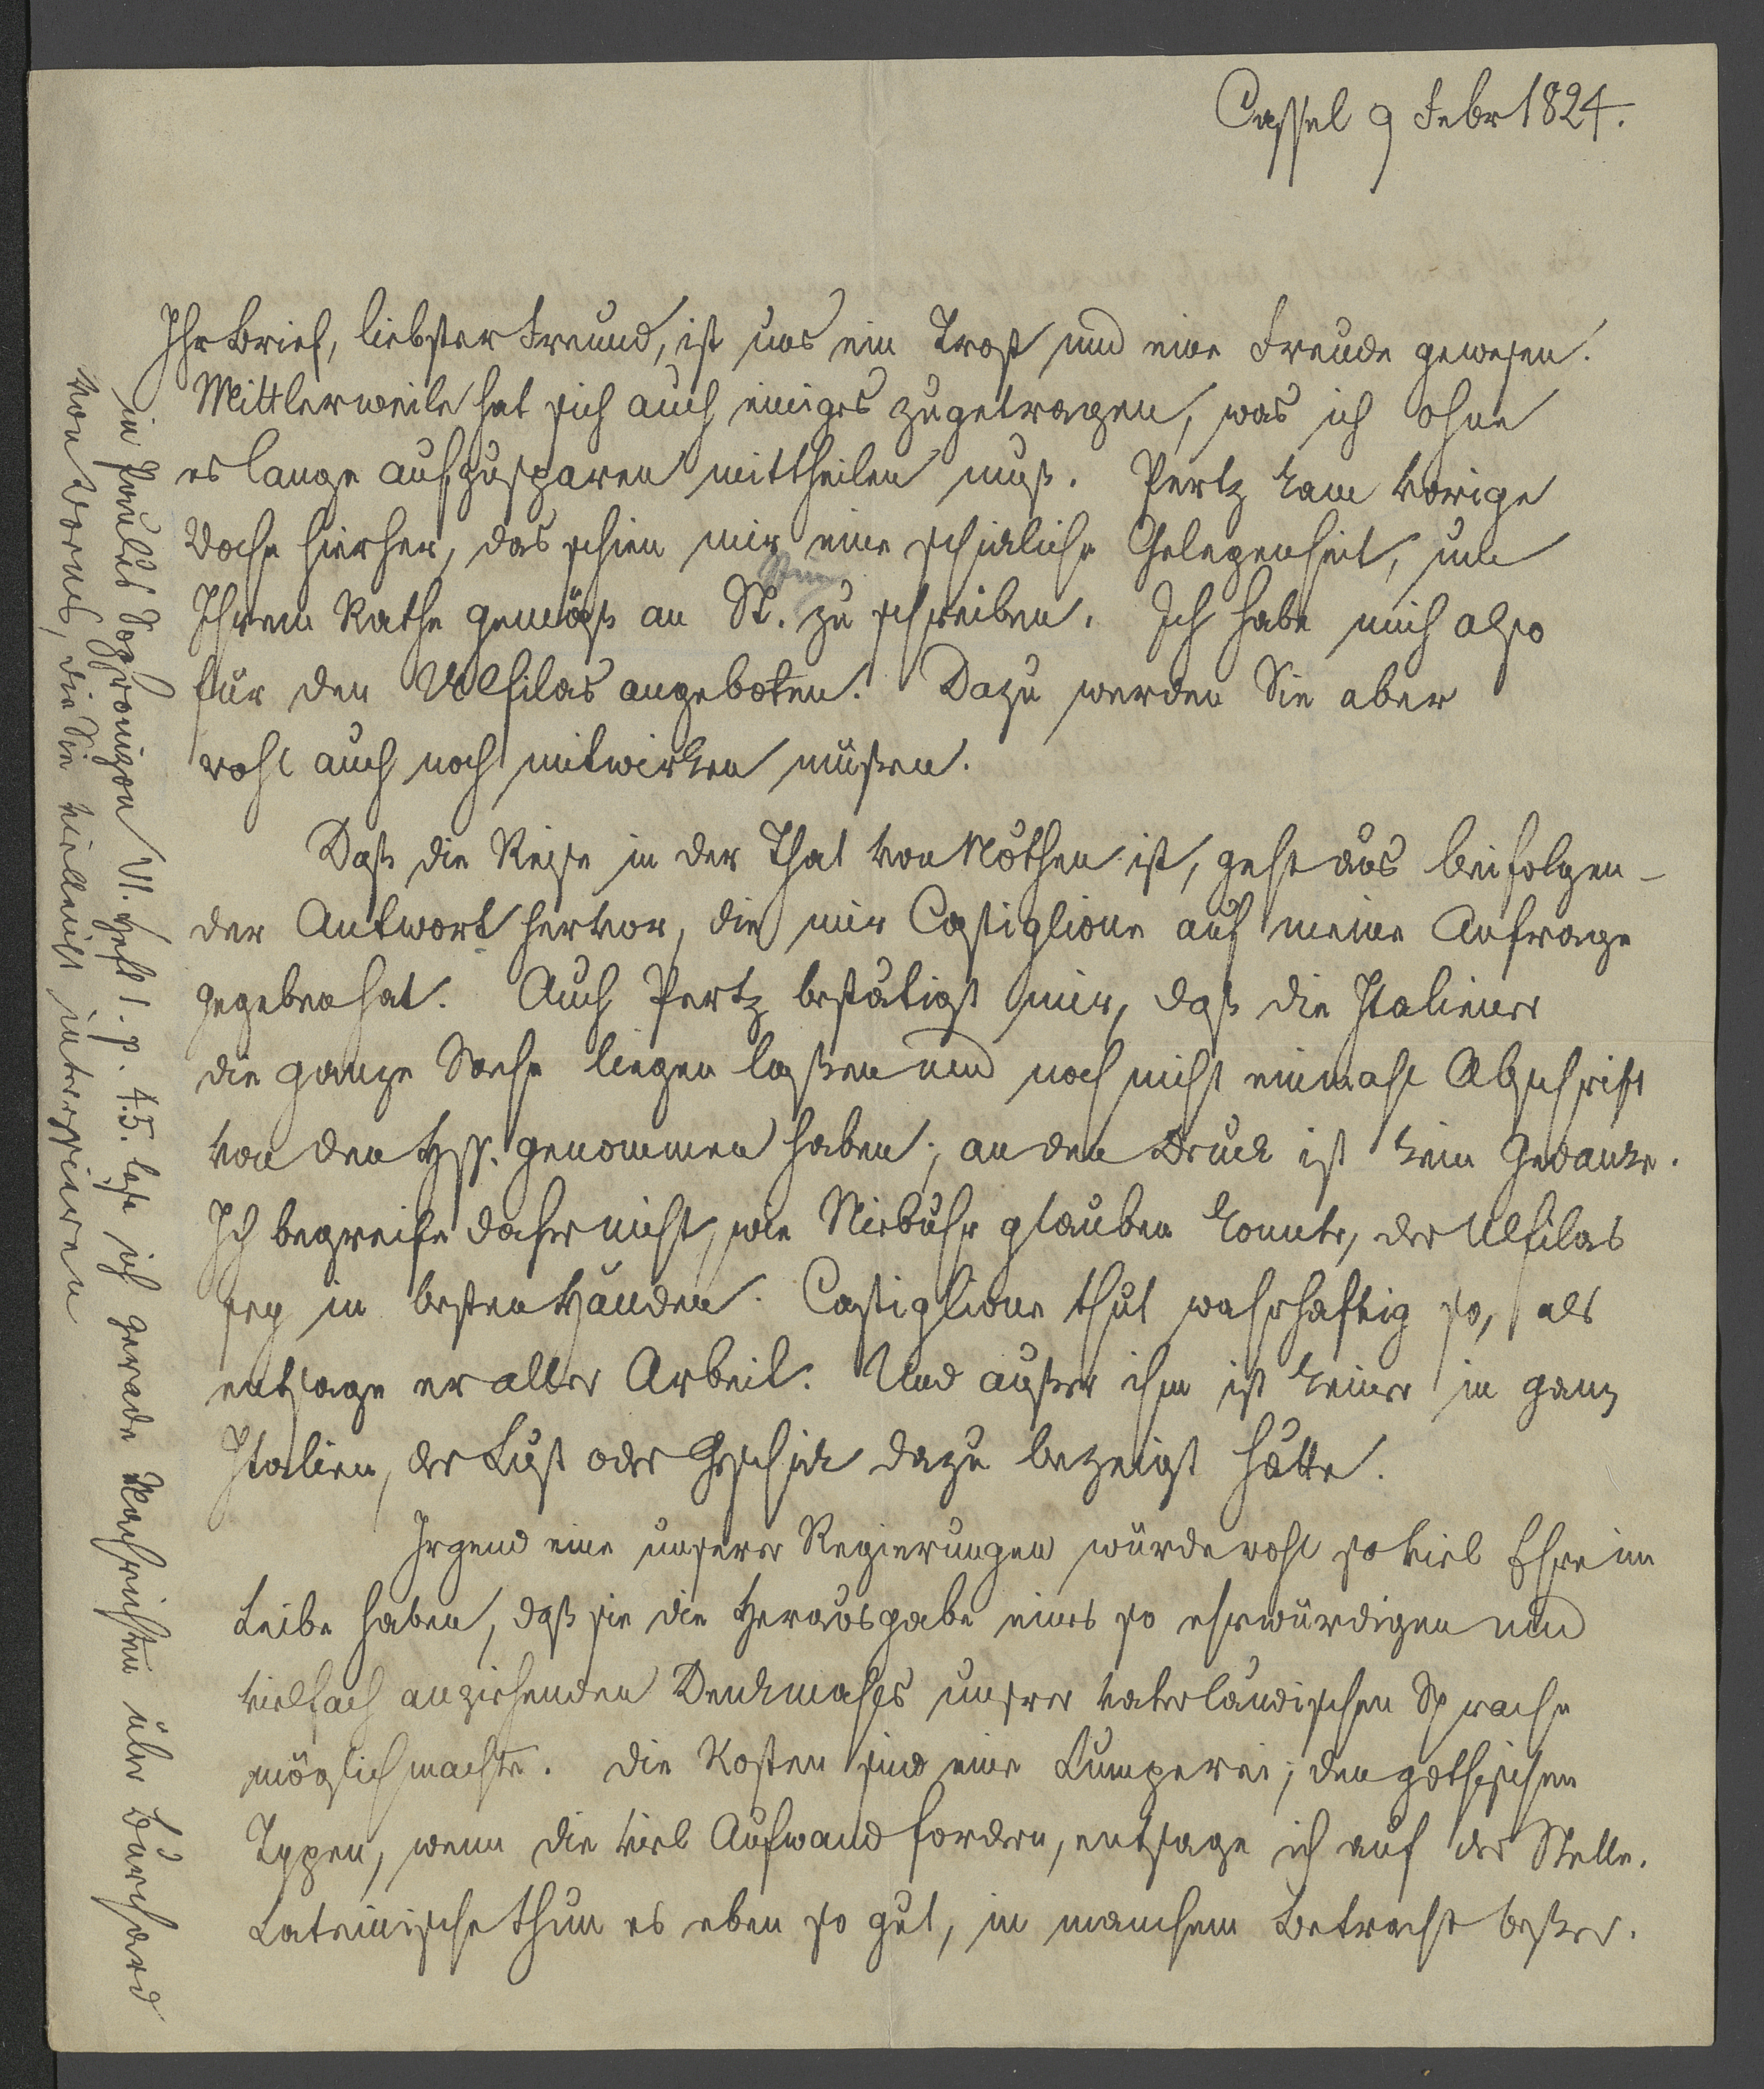 Cassel 9 Febr 1824.
Ihr Brief, liebster Freund, ist uns ein Trost und eine Freude gewesen.
Mittlerweile hat sich auch einiges zugetragen, was ich ohne
es lange aufzusparen mittheilen muß. Pertz kam vorige
Woche hierher, das schien mir eine schickliche Gelegenheit, um
Ihrem Rathe gemäß an St. zu schreiben. Ich habe mich also
für den Ulfilas angeboten. Dazu werden Sie aber
wohl auch noch mitwirken müßen.
Daß die Reise in der That von Nöthen ist, geht aus beifolgen-
der Antwort hervor, die mir Castiglione auf meine Anfrage
gegeben hat. Auch Pertz bestätigt mir, daß die Italiener
die ganze Sache liegen laßen und noch nicht einmahl Abschrift
von den Hss. genommen haben; an den Druck ist kein Gedanke.
Ich begreife daher nicht, wie Niebuhr glauben konnte, der Ulfilas
sey in besten Händen. Castiglione thut wahrhaftig so, als
entsage er aller Arbeit. Und außer ihm ist keiner in ganz
Italien, der Lust oder Geschick dazu bezeigt hätte.
Irgend eine unserer Regierungen würde wohl so viel Ehre im
Leibe haben, daß sie die Herausgabe eines so ehrwürdigen und
vielfach anziehenden Denkmahls unsrer vaterländischen Sprache
möglich machte. Die Kosten sind eine Lumperei; den gothischen
Typen, wenn die viel Aufwand fordern, entsage ich auf der Stelle.
Lateinische thun es eben so gut, in manchem Betracht beßer.
in Paulus Sophronizon VI. Heft 1. p. 45. lese ich gerade Nachrichten über Burchard
von Worms, die Sie vielleicht interessieren